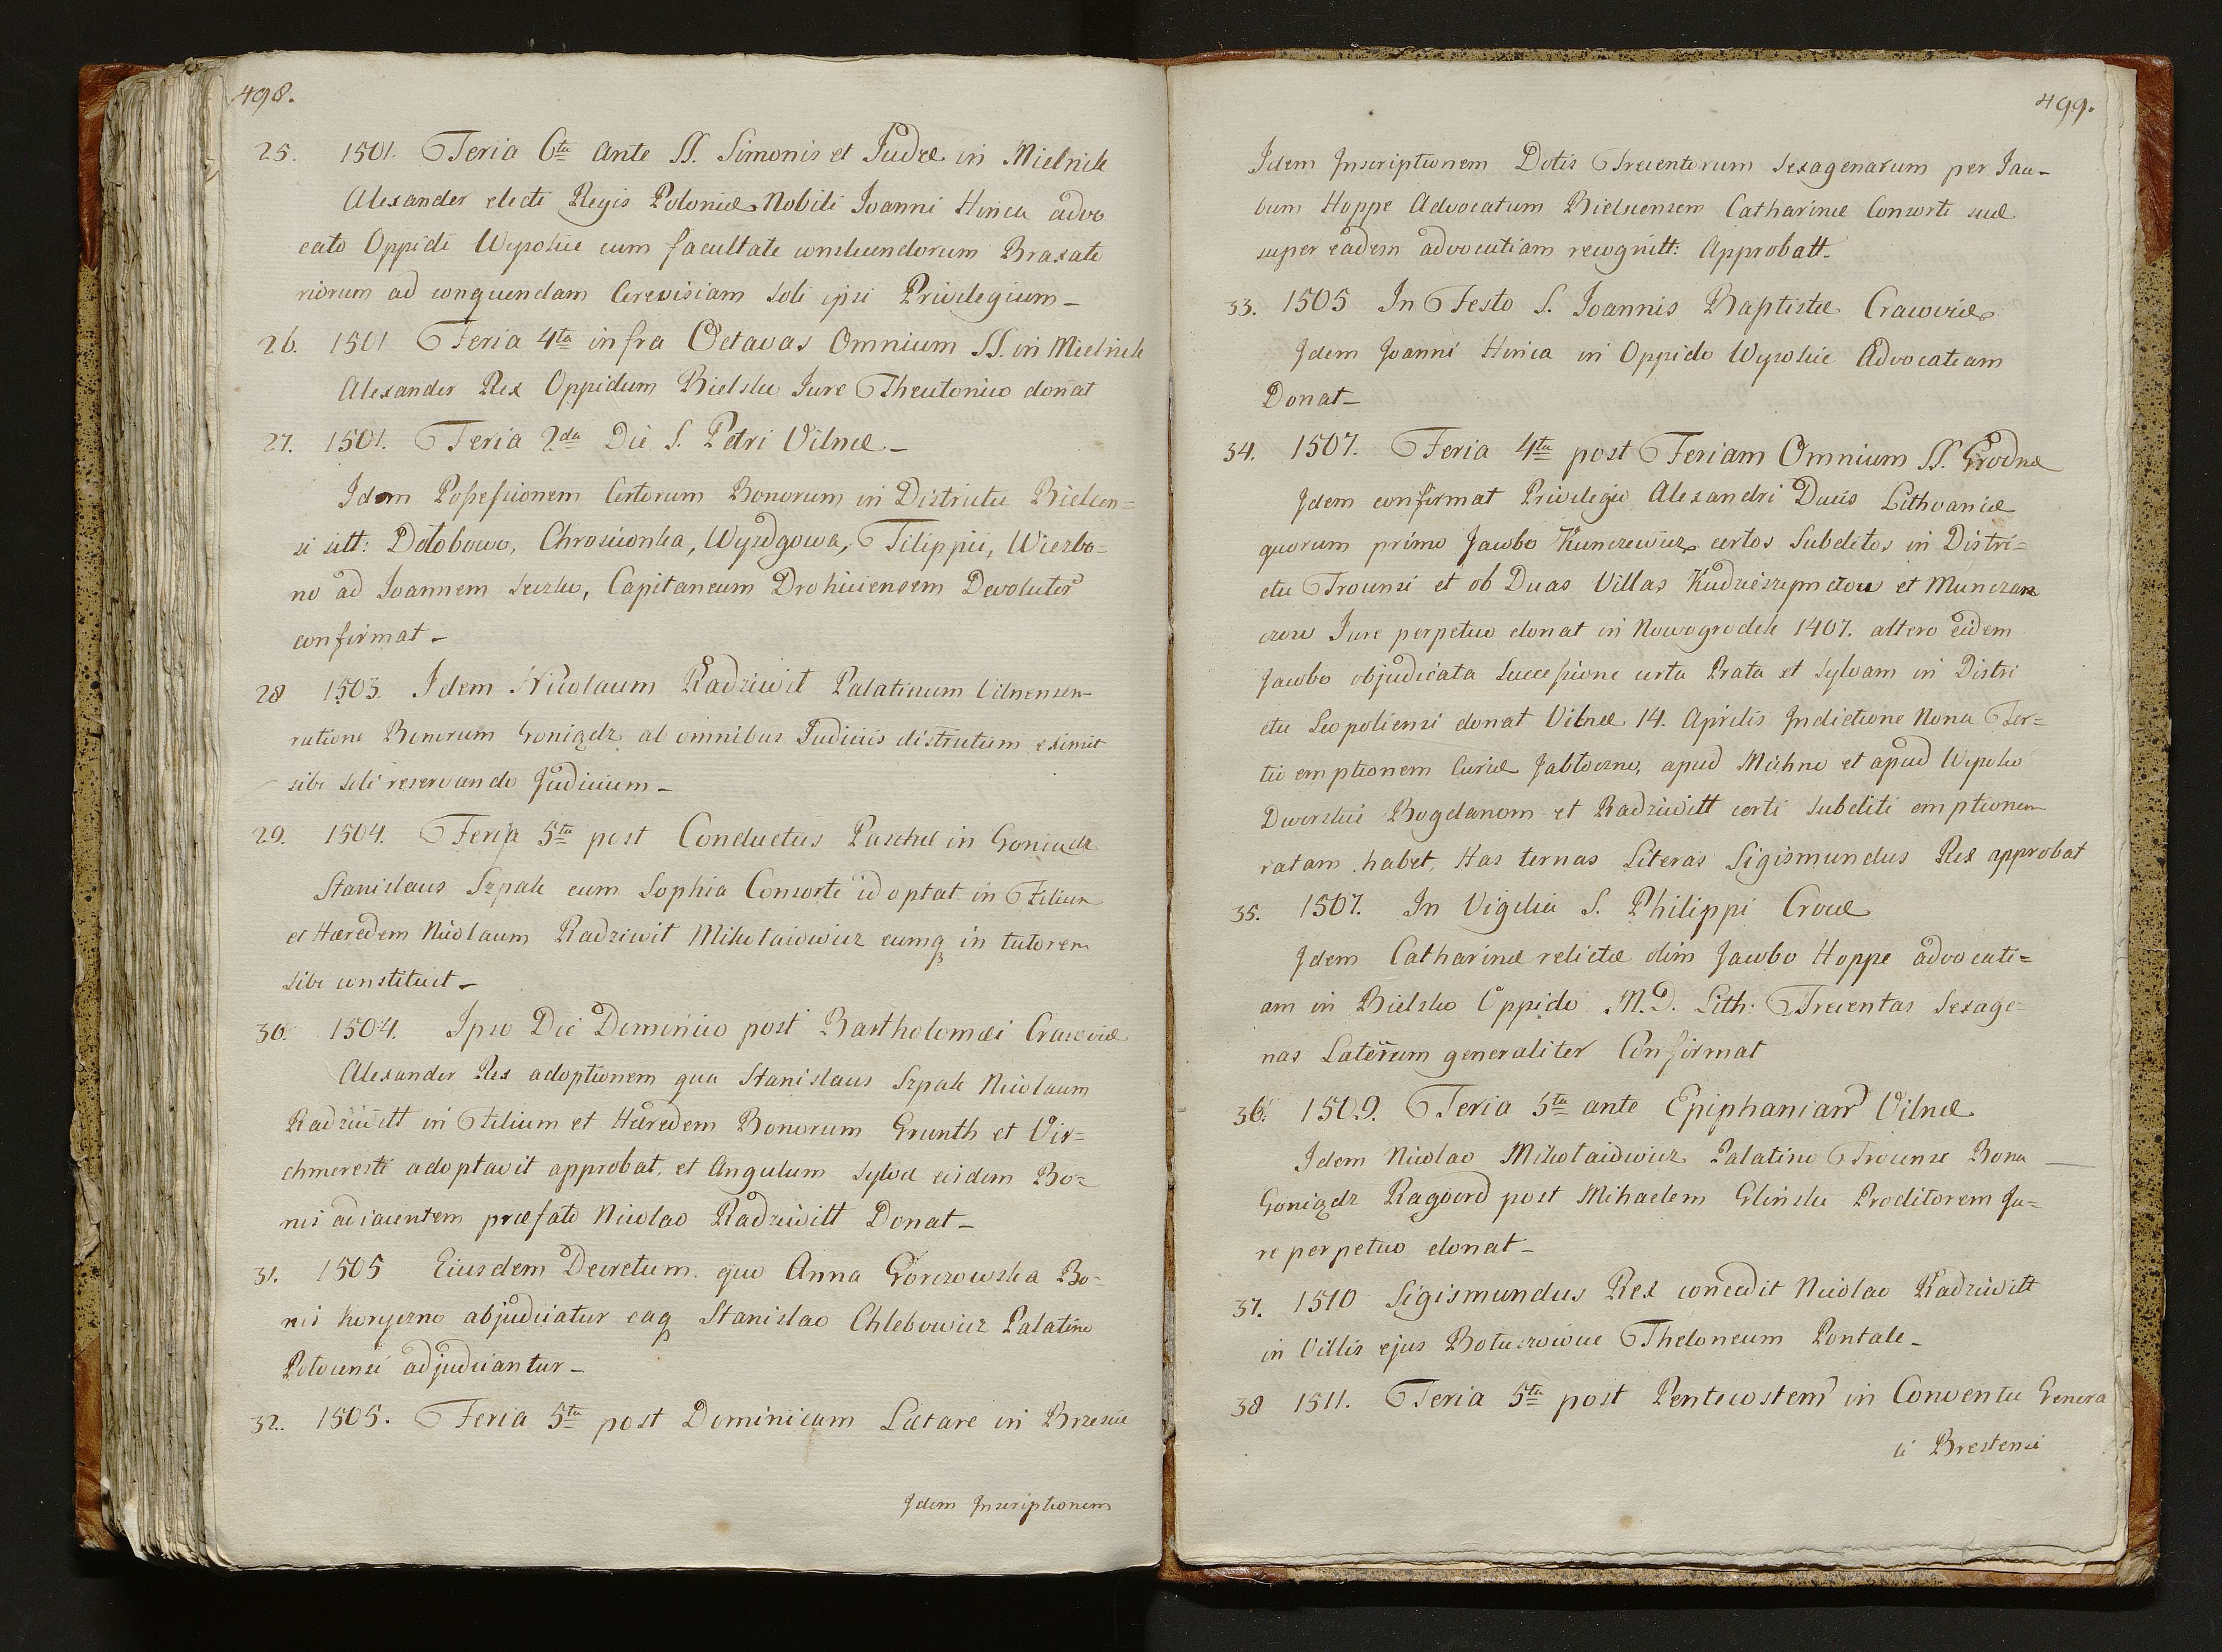 498.
25. 1501. Feria 6ta ante SS. Simonis et Judæ in Mielnik
Alexander electi Regis Poloniæ Nobili Joanni Hinca advo
cato Oppidi Wysokie cum facultate construendorum Braxato
riorum ad conquendam Cerevisiam soli ipsi Privilegium_
26. 1501 Feria 4ta infra Octavas Omnium SS. in Mielnik
Alexander Rex Oppidum Bielsko Jure Theutonico donat
27. 1501. Feria 2da Die S. Petri Vilnæ_
Idem Possessionem Certorum Bonorum in Districtu Bielcen=
si sitt: Dołobowo, Chroscionka, Filippii, Wierzbo=
no ad Joannem Capitaneum Drohiciensem Devolutor
confirmat_
28 1503. Idem Nicolaum Radziwił Palatinum Vilnensen
ratione Bonorum Goniądz ab omnibus Judiciis districtum eximit
sibi soli reservando Judicium_
29. 1504. Feria 5ta post Conductus Paschæ in Goniądz
Stanislaus Szpak cum Sophia Consorte adoptat in Filium
et Hæredem Nicolaum Radziwił Mikołaiowicz eumq in tutorem
sibi constituit_
30. 1504. Ipso Die Dominico post Bartholomæi Cracoviæ
Alexander Rex adoptionem qua Stanislaus Szpak Nicolaum
Radziwiłł in Filium et Hæredem Bonorum Grunth et Vir=
adoptavit approbat, et Angulum Sylvæ eisdem Bo=
nis adiacentem præfato Nicolao Radziwiłł Donat_
31. 1505 Eiusdem Decretum quo Anna Gorczowska Bo-
nis abjudicatur eaq Stanislao Chlebowicz Palatino
Polocensi adjudicantur_
32. 1505. Feria 5ta post Dominicam Lætare in Brzescie
Idem Inscriptionem
499.
Idem Inscriptionem Dotis Trecentorum sexagenarum per Jaco-
bum Hoppe Advocatum Bielscensem Catharinæ Consorti suæ
super eadem advocatiam recognitt: Approbatt_
33. 1505 In Festo S. Joannis Baptistæ Cracoviæ
Idem Joanni Hinca in Oppido Wysokie Advocatiam
Donat_
34. 1507. Feria 4ta post Feriam Omnium SS. Grodnæ
Idem confirmat Privilegia Alexandri Ducis Lithvaniæ
quorum primo Jacobo Kunczewicz certos Subditos in Distri=
ctu Trocensi et ob Duas Villas et
Jure perpetuo donat in Nowogrodek 1407. altero eidem
Jacobo objudicata Successione certa Prata et Sylvam in Distri
ctu Leopoliensi donat Vilnæ 14. Aprilis Indictione Nona Ter=
tio emptionem Curiæ Jabłoczno, apud Michno et apud
Bogdanom et Radziwiłł certi Subditi emptionem
ratam habet, Has ternas Literas Sigismundus Rex approbat
35. 1507. In Vigilia S. Philippi Crocæ
Idem Catharinæ relictæ olim Jacobo Hoppe advocati=
am in Bielsko Oppido M.D. Lith: Trecentas Sexage=
nas Laterum generaliter Confirmat
36. 1509. Feria 5ta ante Epiphaniam Vilnæ
Idem Nicolao Mikołaiowicz Palatino Trocensi Bona
Goniądz Raygord post Mihaelem Glinski Proditorem Ju=
re perpetuo donat_
37. 1510 Sigismundus Rex concedit Nicolao Radziwiłł
in Villis ejus Theloneum Pontale_
38 1511. Feria 5ta post Pentecostem in Conventu Genera
li Brestensi